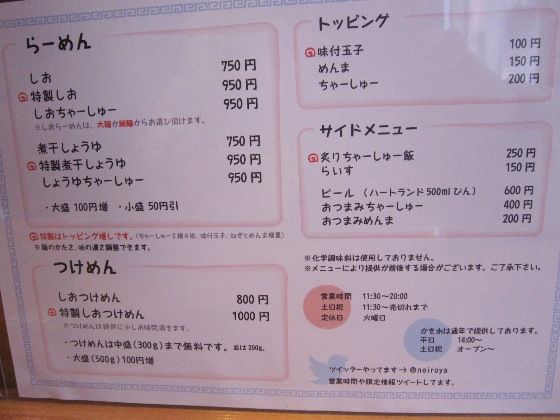 らーめん
しお 750円
特製しお 950円
しおちゃーしゅー 950円
※しおらーめんは、太麺か細麺からお選び頂けます。
煮干しょうゆ 750円
特製煮干しょうゆ 950円
しょうゆちゃーしゅー 950円
・大盛 100円増 ・小盛 50円引
特製はトッピング増しです。(ちゃーしゅー2種4枚、味付玉子、ねぎとめんま増量)
※麺のかたさ、味の濃さ調整できます。
つけめん
しおつけめん 800円
特製しおつけめん 1000円
※つけめんは提供に少しお時間頂きます。
・つけめんは中盛(300g)まで無料です。並は200g。
・大盛(500g)100円増
トッピング
味付玉子 100円
めんま 150円
ちゃーしゅー 200円
サイドメニュー
炙りちゃーしゅー飯 250円
らいす 150円
ビール (ハートランド500mlびん) 600円
おつまみちゃーしゅー 400円
おつまみめんま 200円
※化学調味料は使用しておりません。
※メニューにより提供が前後する場合がございます。ご了承下さい。
営業時間 11:30~20:00
土日祝 11:30~売切れまで
定休日 火曜日
かき氷は通年で提供しております。
平日 14:00~
土日祝 オープン~
ツイッターやってます→@neiroya
営業時間や限定情報ツイートしてます。